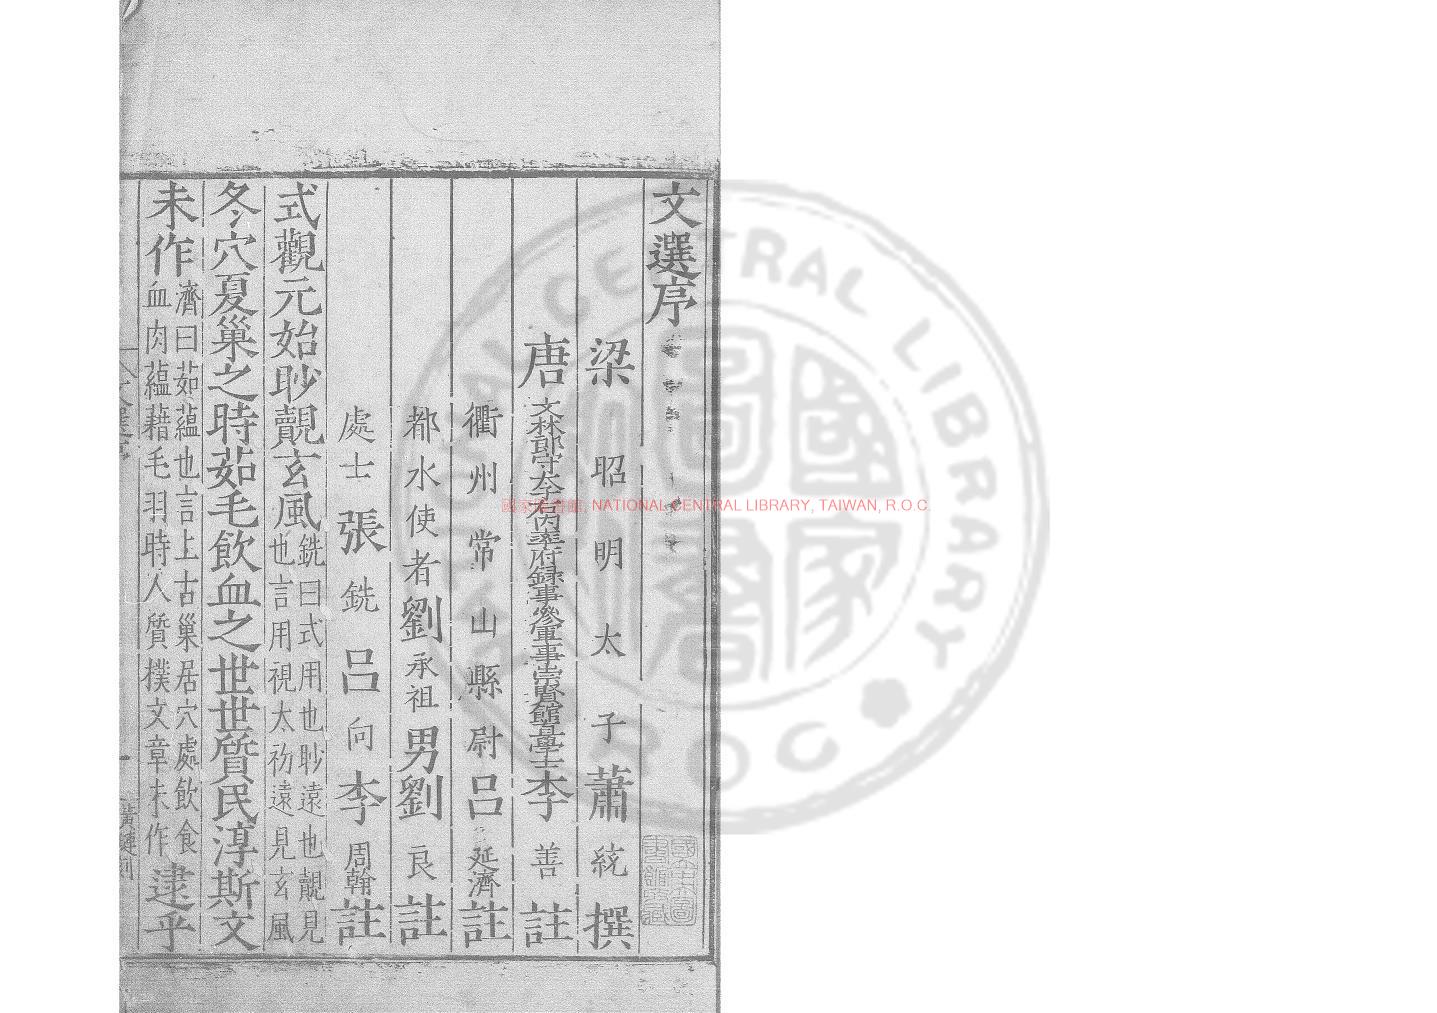 文選序
梁昭明太子蕭統撰
唐文林郎守太子右內率府錄事參軍事崇賢館直學士李善註
衢州常山縣尉呂延濟註
都水使者劉承祖男劉良註
處士張銑呂向李周翰註
式觀元始眇覿玄風銑曰式用也眇遠也覿見
也言用視太初遠見玄風
冬穴夏巢之時茹毛飲血之世世質民淳斯文
未作濟曰茹蘊也言上古巢居穴處飲食
血肉蘊藉毛羽時人質樸文章未作逮乎
國家圖書館, NATIONAL CENTRAL LIBRARY, TAIWAN, R.O.C.
NATIONAL CENTRAL LIBRARY
ROC